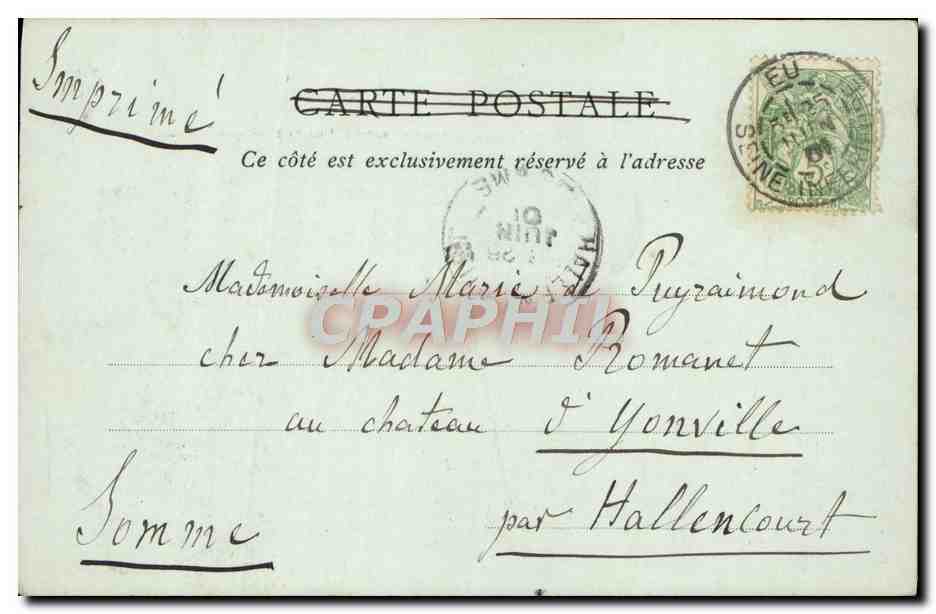 Imprimé
CARTE POSTALE
Ce côté est exclusivement réservé à l'adresse
EU
SEINE INFRE
JUIN
01
SOMME
JUIN
01
Mademoiselle Marie de Puyraimond
CPAPHIL
chez Madame Romanet
au chateau d'Yonville
par Hallencourt
Somme